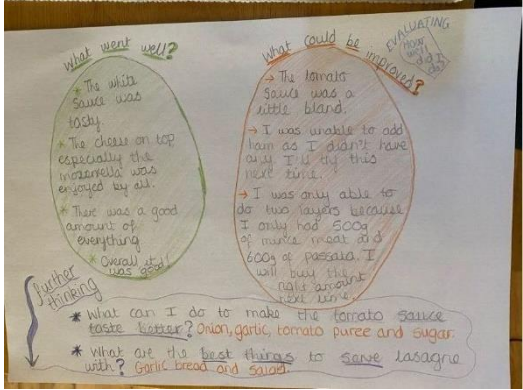 EVALUATING
How
well
did I
do?
What went well?
* The white
sauce was
tasty.
* The cheese on top
especially the
mozerella was
enjoyed by all.
* There was a good
amount of
everything
* Overall it
was good!
What could be improved?
→ The tomato
sauce was a
little bland.
→ I was unable to add
ham as I didn't have
any. I'll try this
next time.
→ I was only able to
do two layers because
I only had 500g
of mince meat and
600g of passata. I
will buy the
right amount
next time.
further
thinking
* What can I do to make the tomato sauce
taste better? Onion, garlic, tomato puree and sugar.
* What are the best things to serve lasagne
with? Garlic bread and salad.